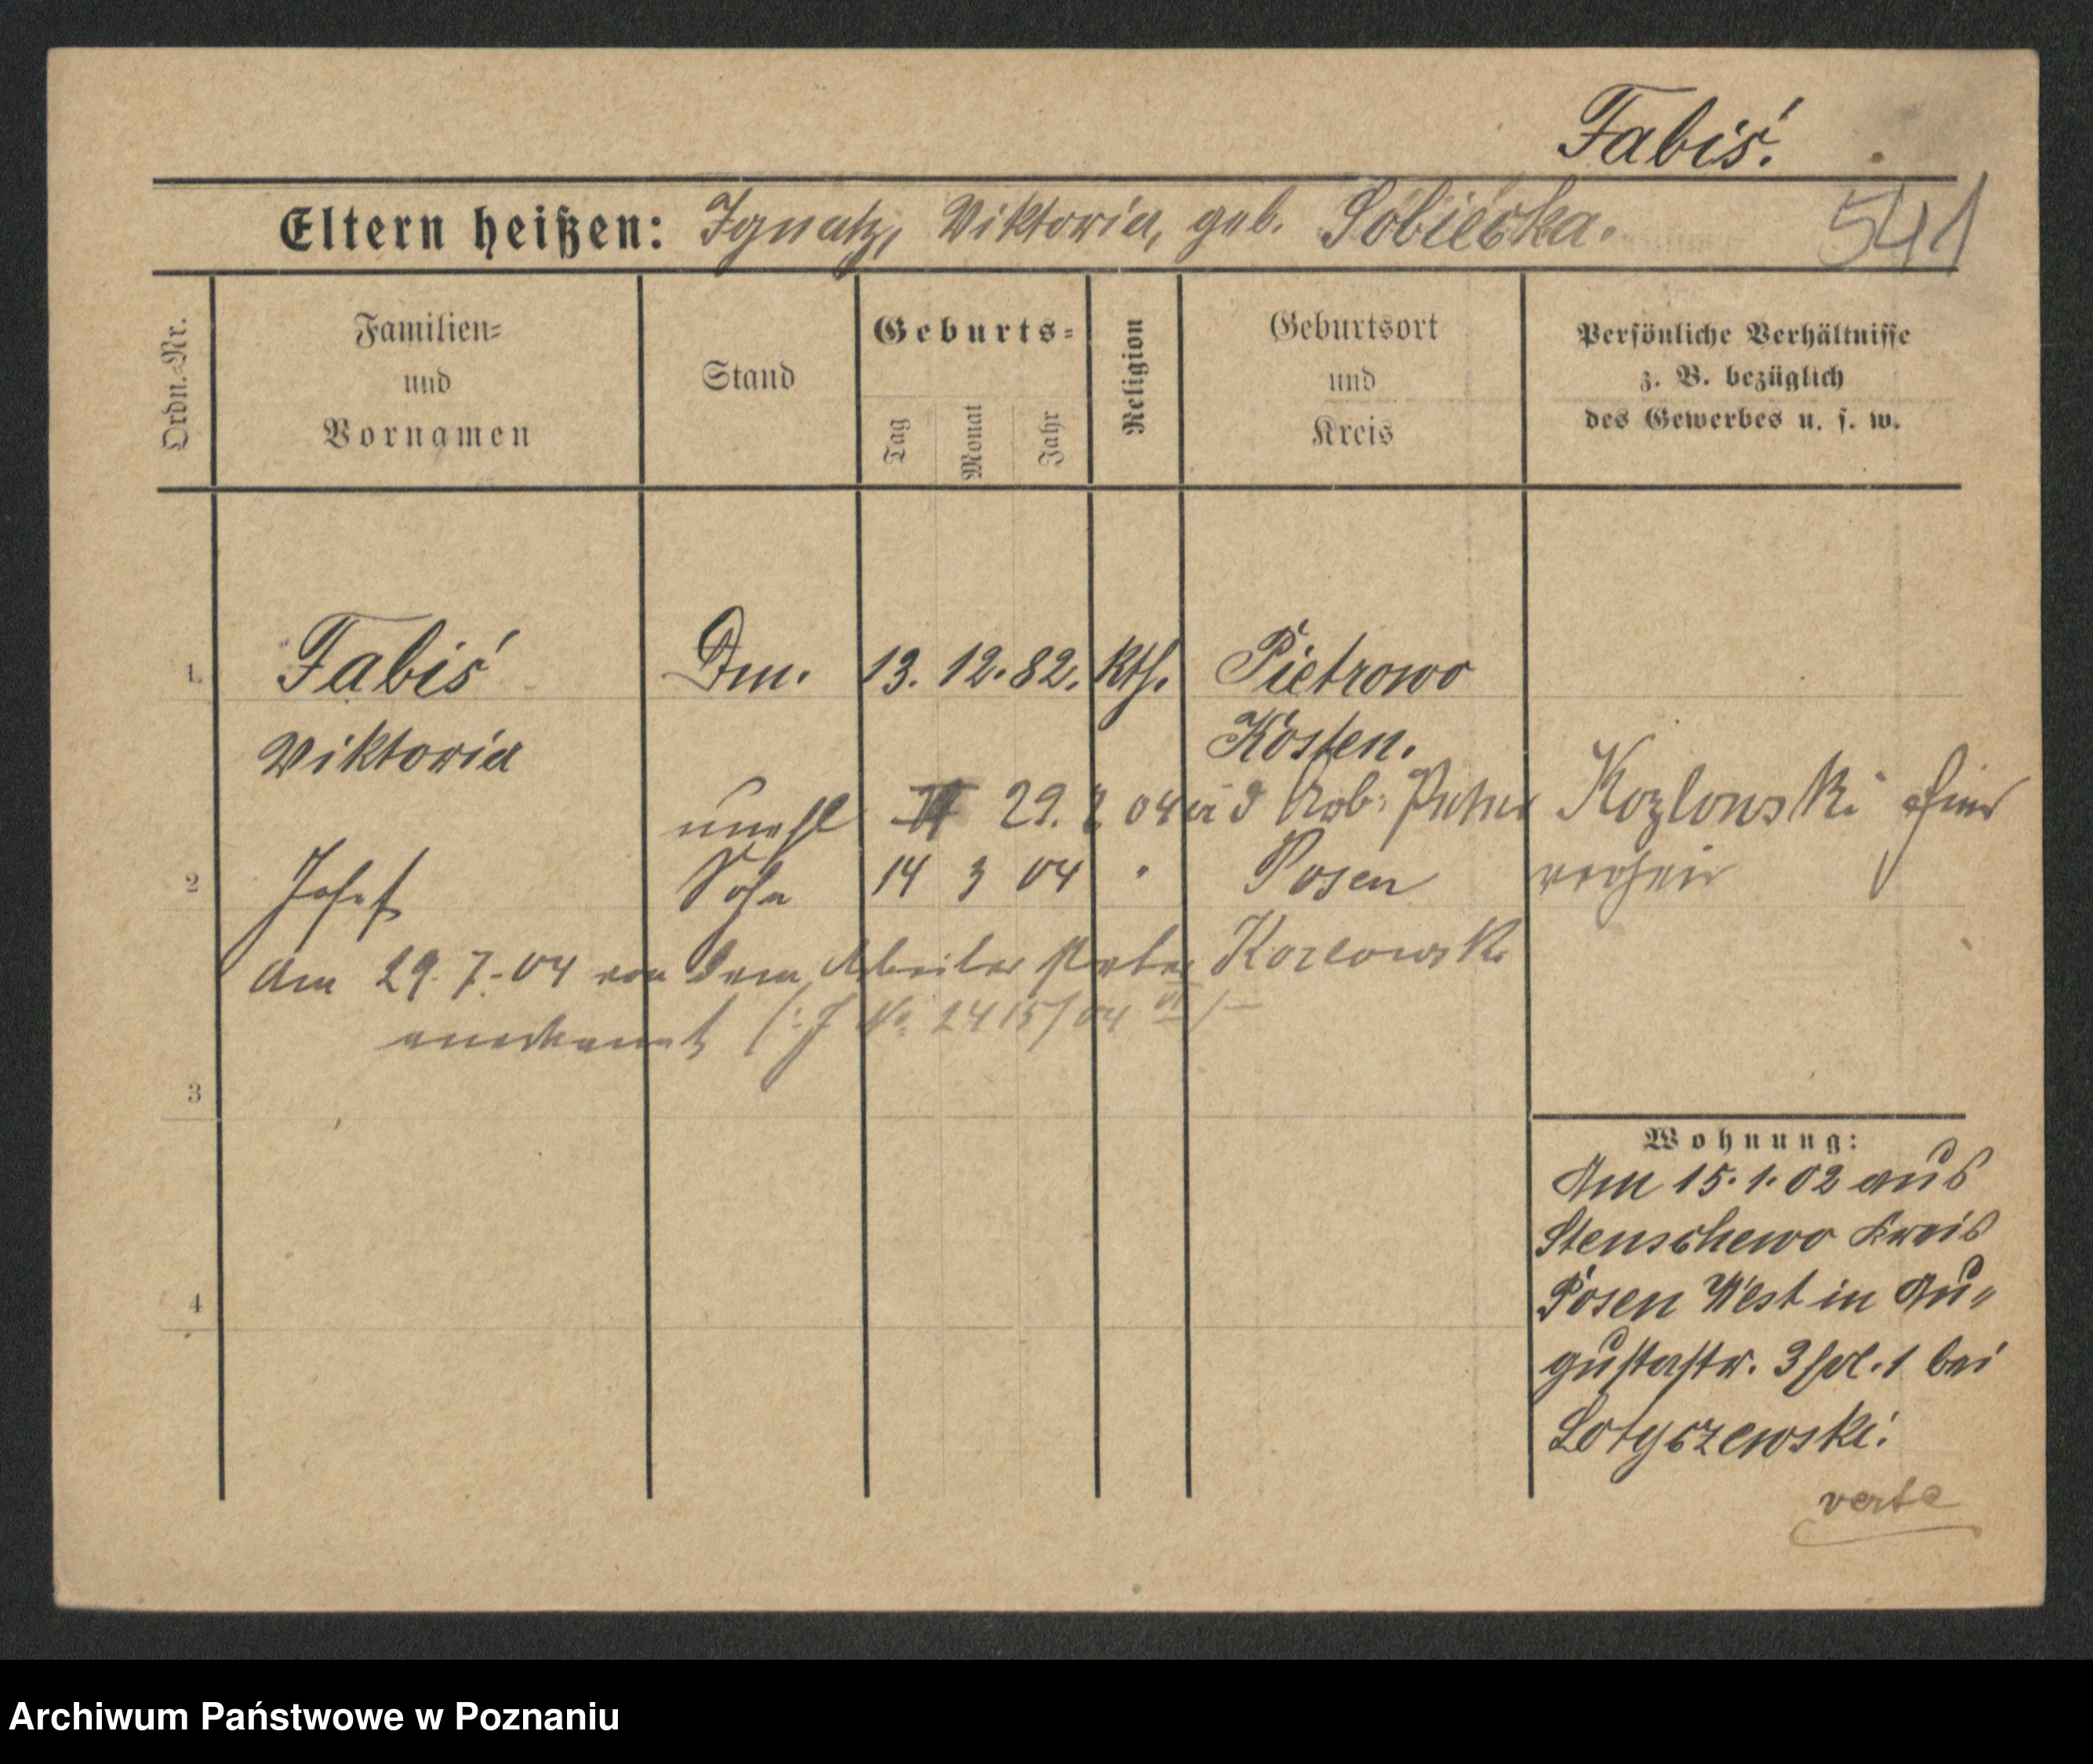 Fabiś.
Eltern heißen: Ignatz, Viktoria, geb. Sobiecka.
541
Ordn.-Nr.
Familien-
und
Vornamen
Stand
Geburts-
Tag
Monat
Jahr
Religion
Geburtsort
und
Kreis
Persönliche Verhältnisse
z. B. bezüglich
des Gewerbes u. s. w.
1. Fabiś Dm. 13. 12. 82. kth. Pietrowo
Viktoria Kosten.
unehl 29. 7 04 Arb. Peter Kozlowski
2 Josef Sohn 14 3 04 " Posen
Am 29. 7. 04 von dem Arbeiter Peter Kozlowski
anerkannt (: J No 2415/04 VI
3
4
Wohnung:
Am 15. 1. 02 aus
Stenschewo Kreis
Posen West in Au-
gustastr. 3 1 bei
Lotyczewski.
verte
Archiwum Państwowe w Poznaniu